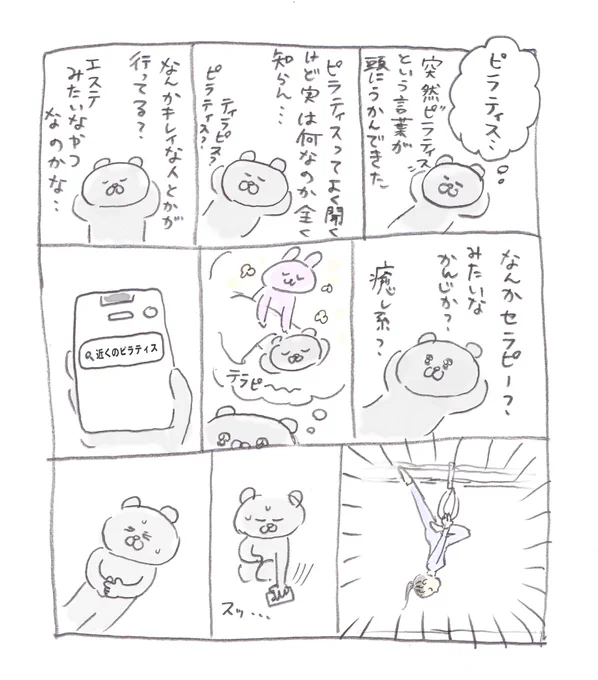 ピラティス…
突然ピラティス
という言葉が
頭にうかんできた
ピラティスってよく聞く
けど実は何なのか全く
知らん…
ティラピス?
ピラティス?
なんかキレイな人とかが
行ってる?
エステ
みたいなやつ
なのかな…
なんかセラピー?
みたいな
かんじか?
癒し系?
テラピ〜〜
近くのピラティス
スッ…